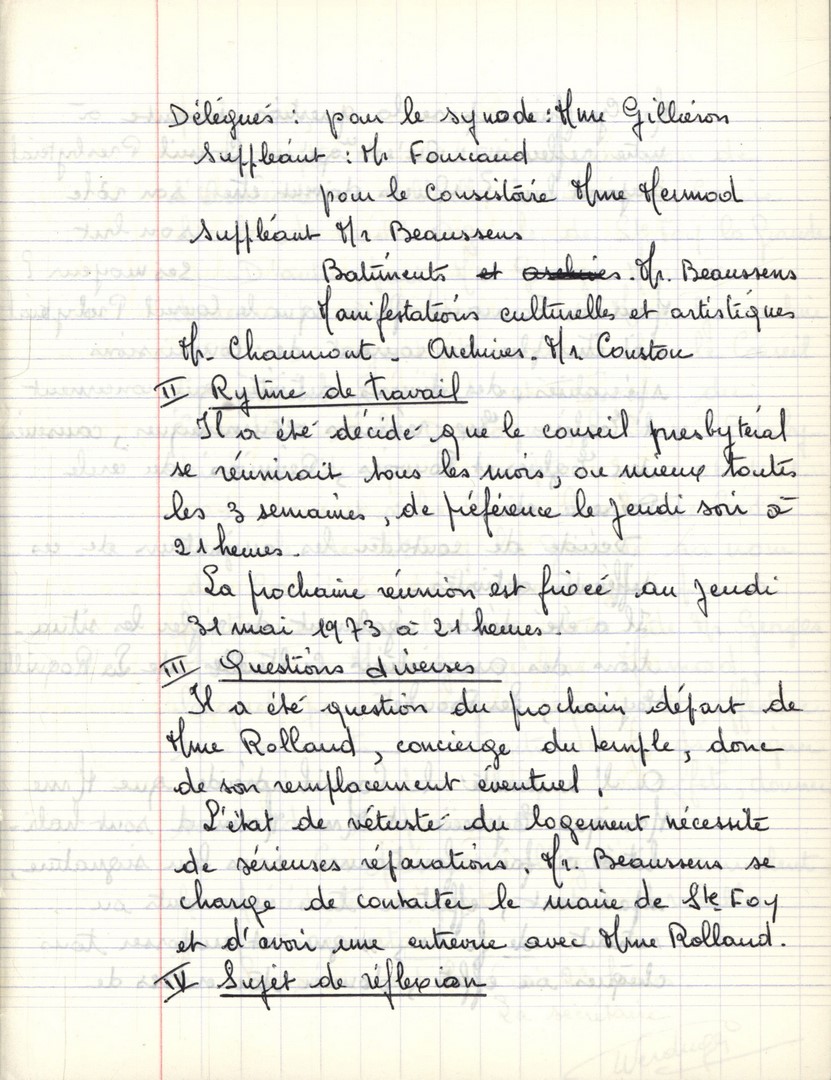 Délégués : pour le synode : Mme Gilliéron
Suppléant : Mr Fourcaud
pour le Consistoire Mme Mermod
Suppléant Mr Beaussens
Batiments et archives. Mr. Beaussens
Manifestations culturelles et artistiques
Mr. Chaumont - Archives. Mr Coustou
II Rytme de travail
Il a été décidé que le conseil presbytéral
se réunirait tous les mois, ou mieux toutes
les 3 semaines, de préférence le jeudi soir à
21 heures.
La prochaine réunion est fixée au jeudi
31 mai 1973 à 21 heures.
III Questions diverses
Il a été question du prochain départ de
Mme Rolland, concierge du temple, donc
de son remplacement éventuel.
L'état de vétusté du logement nécessite
de sérieuses réparations. Mr. Beaussens se
charge de contacter le maire de Ste Foy
et d'avoir une entrevue avec Mme Rolland.
IV Sujet de réflexion